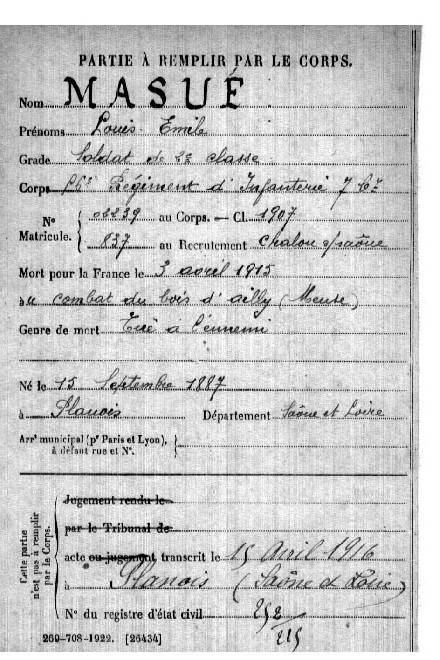 PARTIE À REMPLIR PAR LE CORPS.
Nom MASUÉ
Prénoms Louis Emile
Grade Soldat de 2e classe
Corps 56e Régiment d'Infanterie 7 Cie
N° Matricule. 02239 au Corps. — Cl. 1907
837 au Recrutement Chalon s/saône
Mort pour la France le 3 avril 1915
au combat du bois d'ailly (Meuse)
Genre de mort Tué a l'ennemi
Né le 15 Septembre 1887
à Planois Département Saône et Loire
Arrt municipal (pr Paris et Lyon),
à défaut rue et N°.
Cette partie n'est pas à remplir par le Corps.
Jugement rendu le
par le Tribunal de
acte ou jugement transcrit le 15 Avril 1916
à Planois (Saône et Loire)
N° du registre d'état civil 252
215
269-708-1922. [26434]